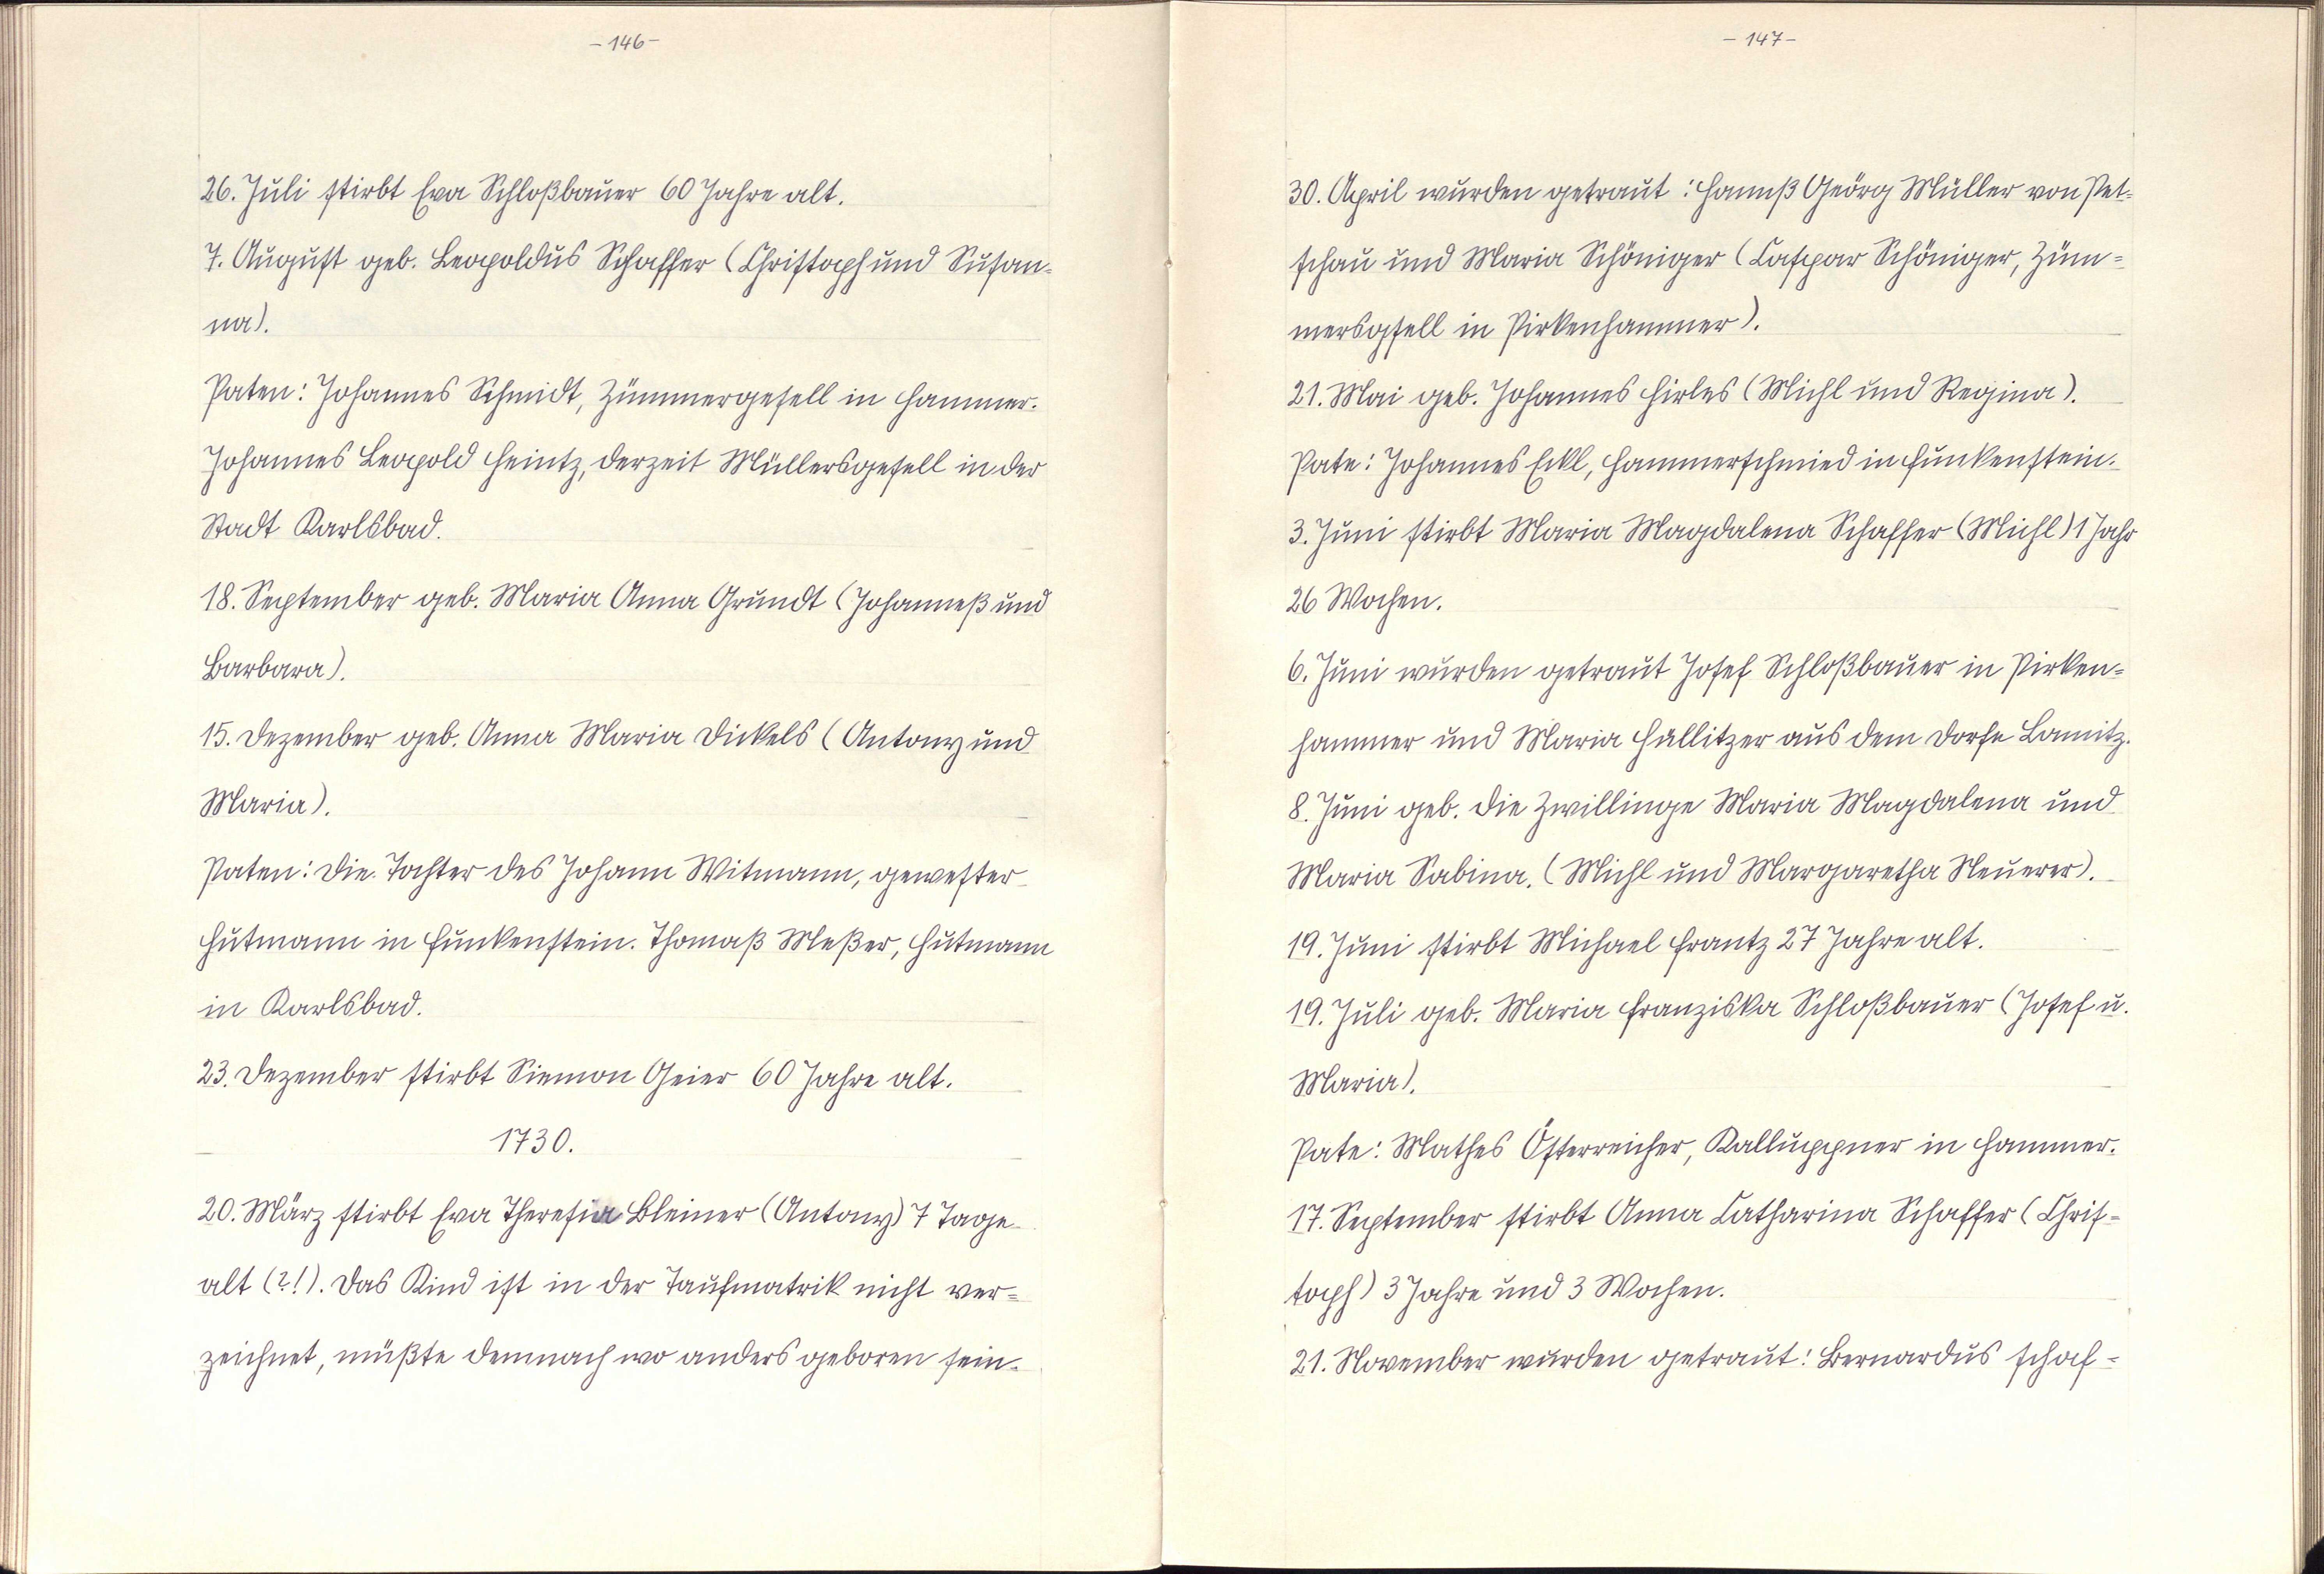 -146-
26. Juli stirbt Eva Schloßbauer 60 Jahre alt.
7. August geb. Leopoldus Schaffer (Christoph und Susan=
na).
Paten: Johannes Schmidt, Zümmergesell in Hammer.
Johannes Leopold Heintz, derzeit Müllersgesell in der
Stadt Karlsbad.
18. September geb. Maria Anna Grundt (Johanneß und
Barbara).
15. Dezember geb. Anna Maria Dickels (Antony und
Maria).
Paten: Die Tochter des Johann Witmann, gewester
Hutmann in Funkenstein. Thomaß Meßer, Hutmann
in Karlsbad.
23. Dezember stirbt Siemon Geier 60 Jahre alt.
1730.
20. März stirbt Eva Theresia Bleiner (Antony) 7 Tage
alt (?!). Das Kind ist in der Taufmatrik nicht ver=
zeichnet, müßte demnach wo anders geboren sein.
-147-
30. April wurden getraut: Hannß Geörg Müller von Pet=
schau und Maria Schöniger (Caspar Schöniger, Züm=
mersgsell in Pirkenhammer).
21. Mai geb. Johannes Hirles (Michl und Regina).
Pate: Johannes Eckl, Hammerschmied in Funkenstein.
3. Juni stirbt Maria Magdalena Schaffer (Michl) 1 Jahr
26 Wochen.
6. Juni wurden getraut Josef Schloßbauer in Pirken=
hammer und Maria Hallitzer aus dem Dorfe Lamitz.
8. Juni geb. die Zwillinge Maria Magdalena und
Maria Sabina. (Michl und Margaretha Neuerer).
19. Juni stirbt Michael Frantz 27 Jahre alt.
19. Juli geb. Maria Franziska Schloßbauer (Josef u.
Maria).
Pate: Mathes Österreicher, Kalluppner in Hammer.
17. September stirbt Anna Catharina Schaffer (Chris=
toph) 3 Jahre und 3 Wochen.
21. November wurden getraut: Bernardus Schaf=